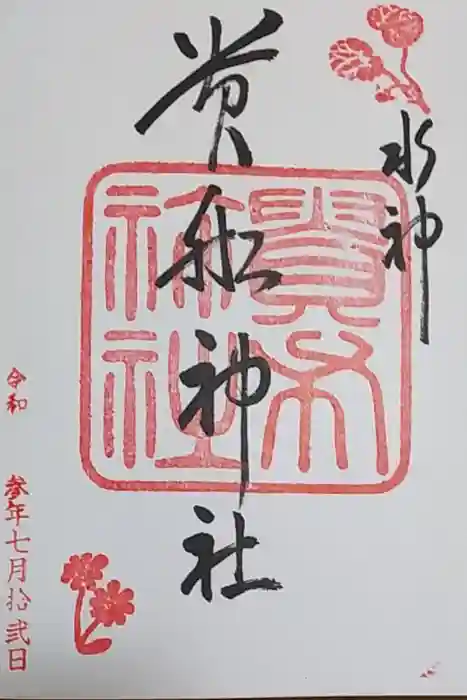 水神
貴船神社
貴布
祢社
令和 参年七月拾弐日